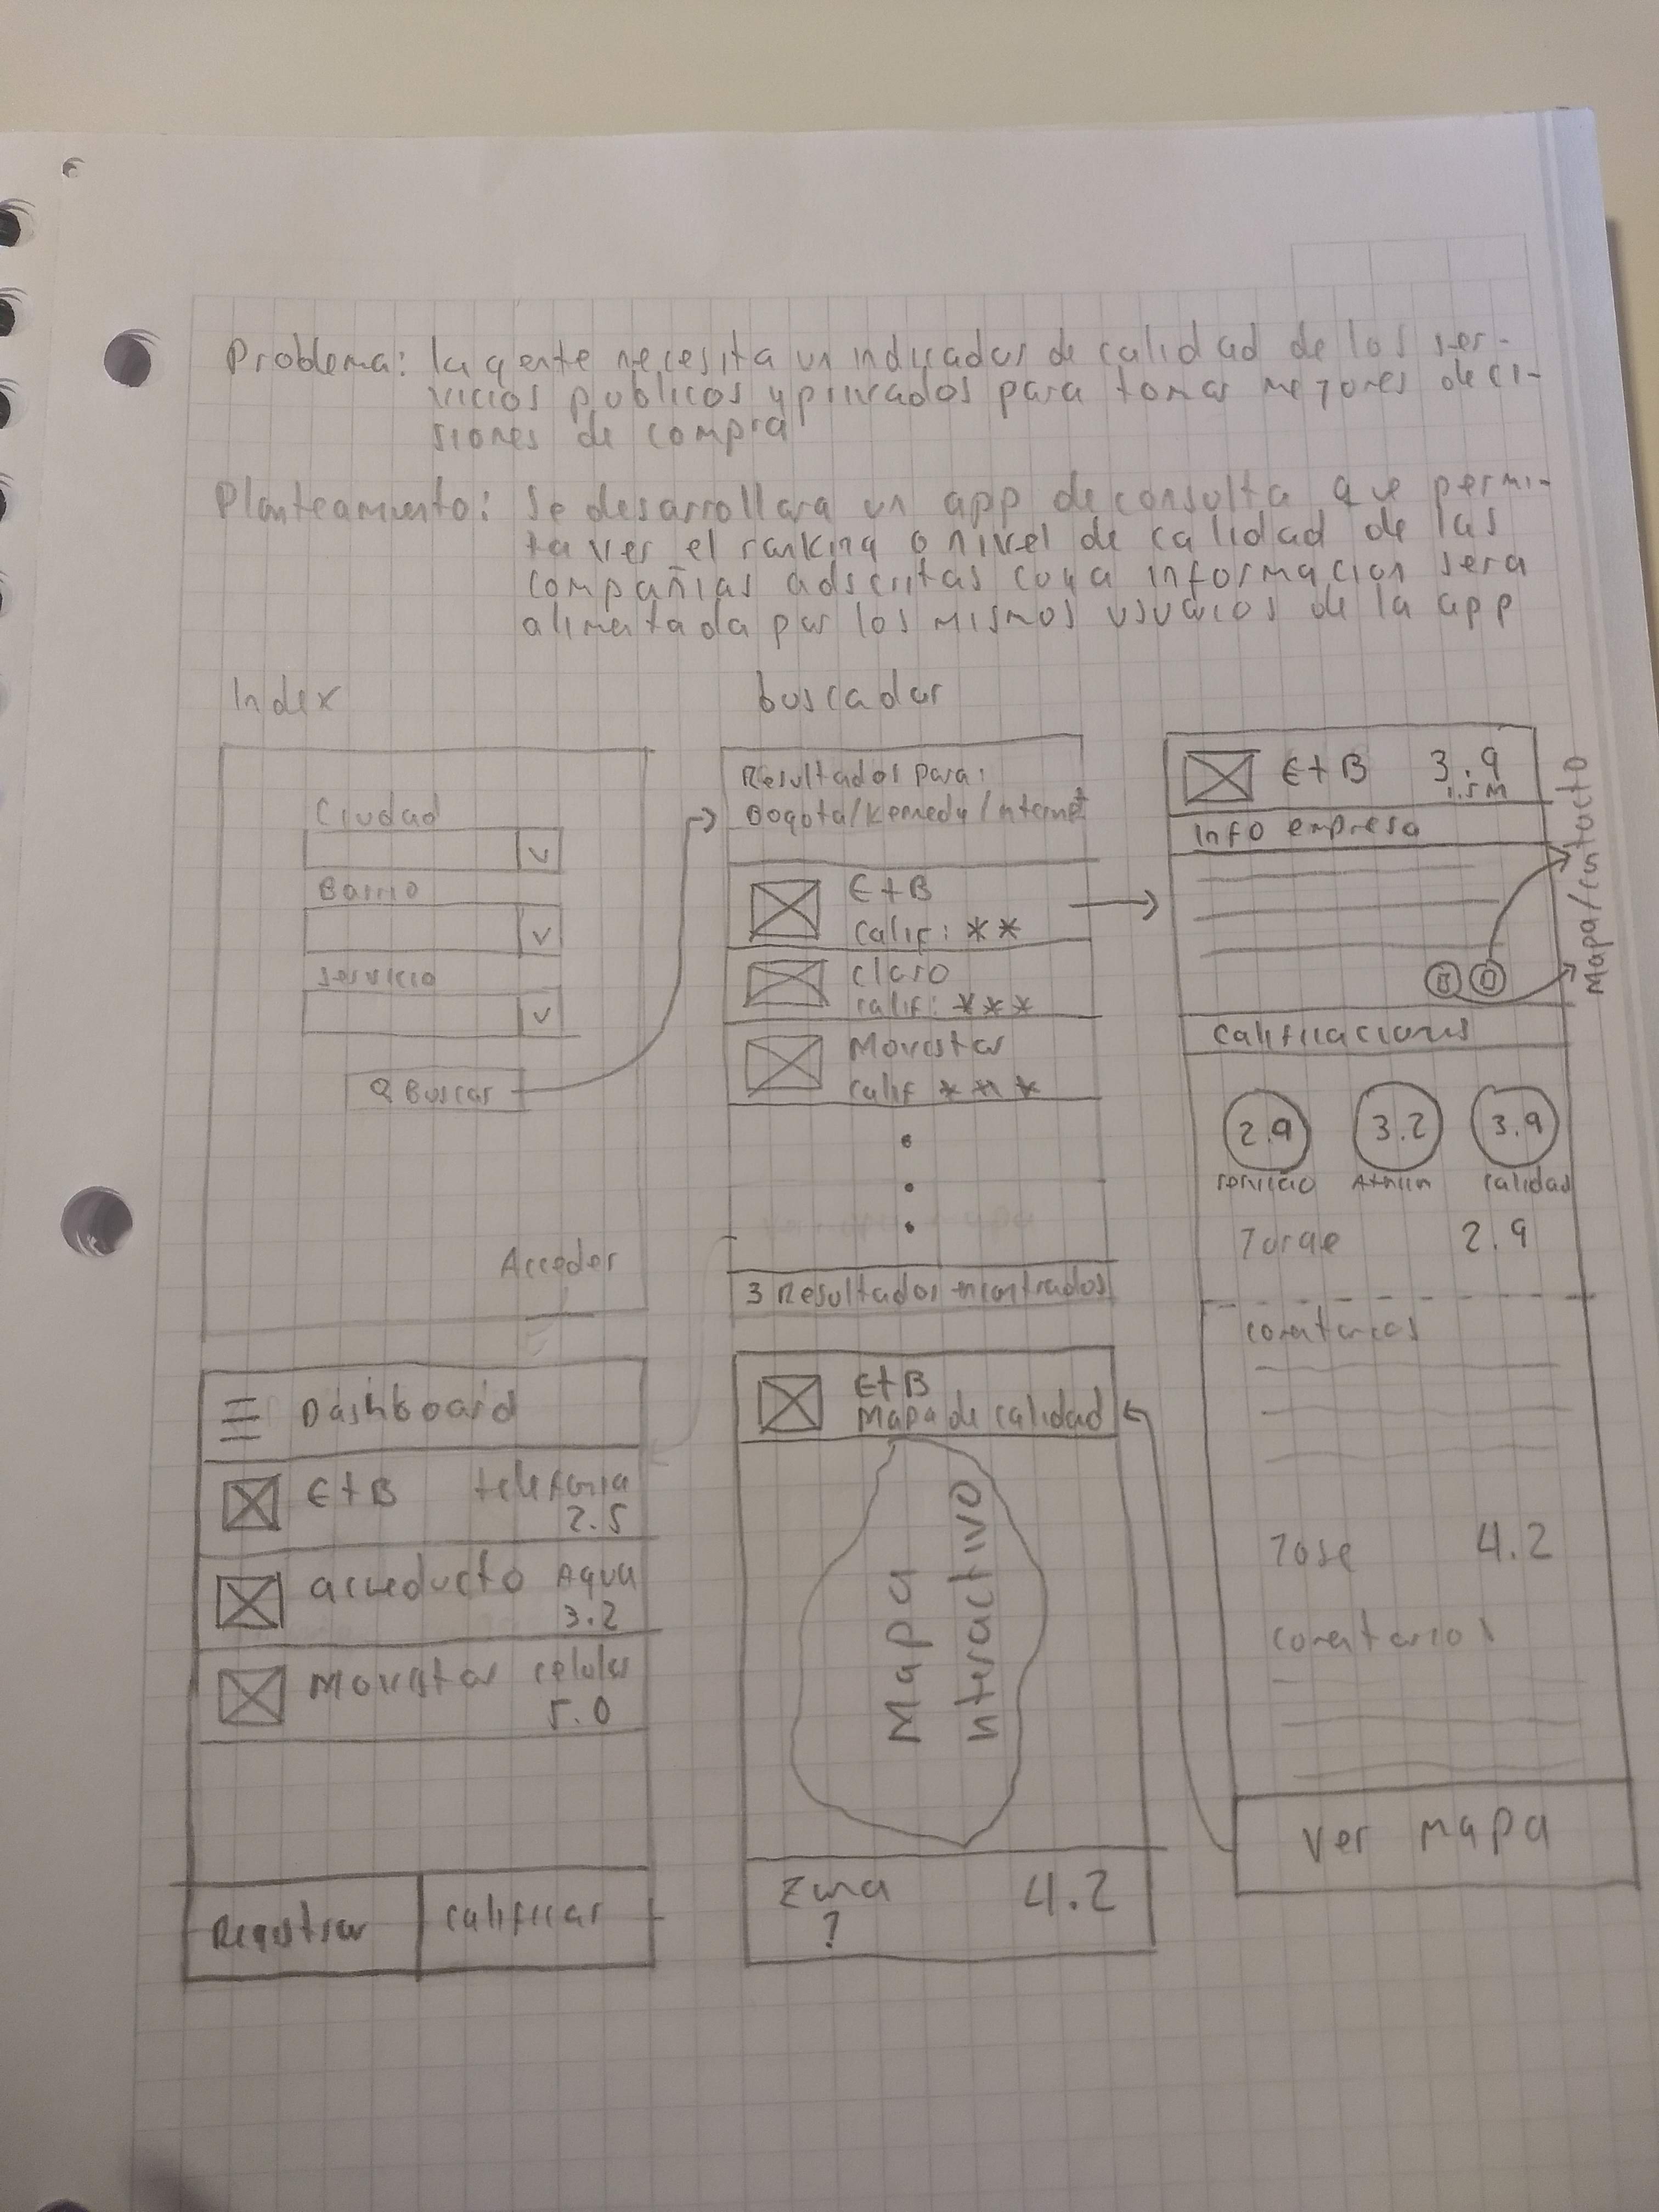 Problema: la gente necesita un indicador de calidad de los ser-
vicios publicos y privados para tomar mejores deci-
siones de compra
Planteamiento: Se desarrollara un app de consulta que permi-
ta ver el ranking o nivel de calidad de las
compañias adscritas cuya informacion sera
alimentada por los mismos usuarios de la app
Index
Ciudad
v
Barrio
v
Servicio
v
Buscar
Acceder
buscador
Resultados para:
Bogota/Kennedy/internet
EtB
Calif: **
Claro
calif: ***
Movistar
calif ***
3 Resultados encontrados
EtB 3.9
1.5M
Info empresa
Mapa/contacto
Calificaciones
2.9 3.2 3.9
servicio Atncin calidad
Jorge 2.9
comentarios
Jose 4.2
comentarios
Ver Mapa
Dashboard
EtB telefonia
2.5
acueducto Agua
3.2
Movistar celular
5.0
Registrar calificar
EtB
Mapa de calidad
Mapa
interactivo
Zona 4.2
?